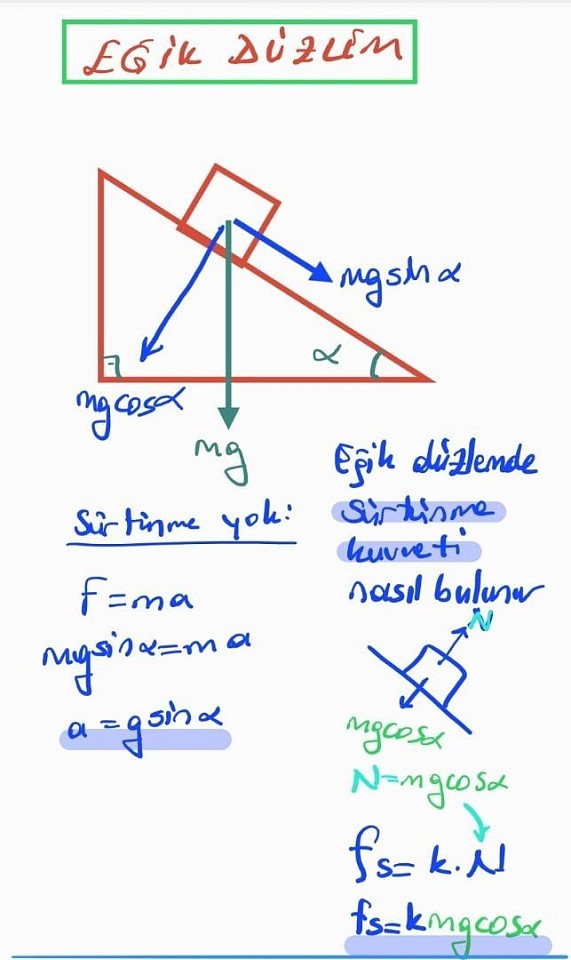 EĞİK DÜZLEM
mgsinα
α
mgcosα
mg
Sürtünme yok:
F=ma
mgsinα=ma
a=gsinα
Eğik düzlemde
sürtünme
kuvveti
nasıl bulunur
N
mgcosα
N=mgcosα
fs=k.N
fs=kmgcosα